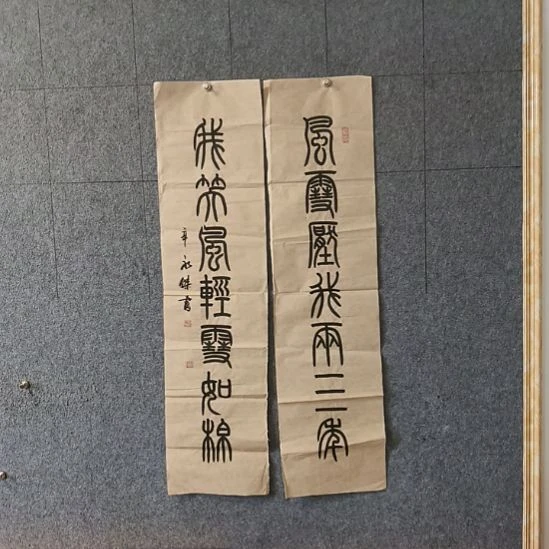 風雪壓我兩三年
我笑風輕雪如棉
辛永傑書